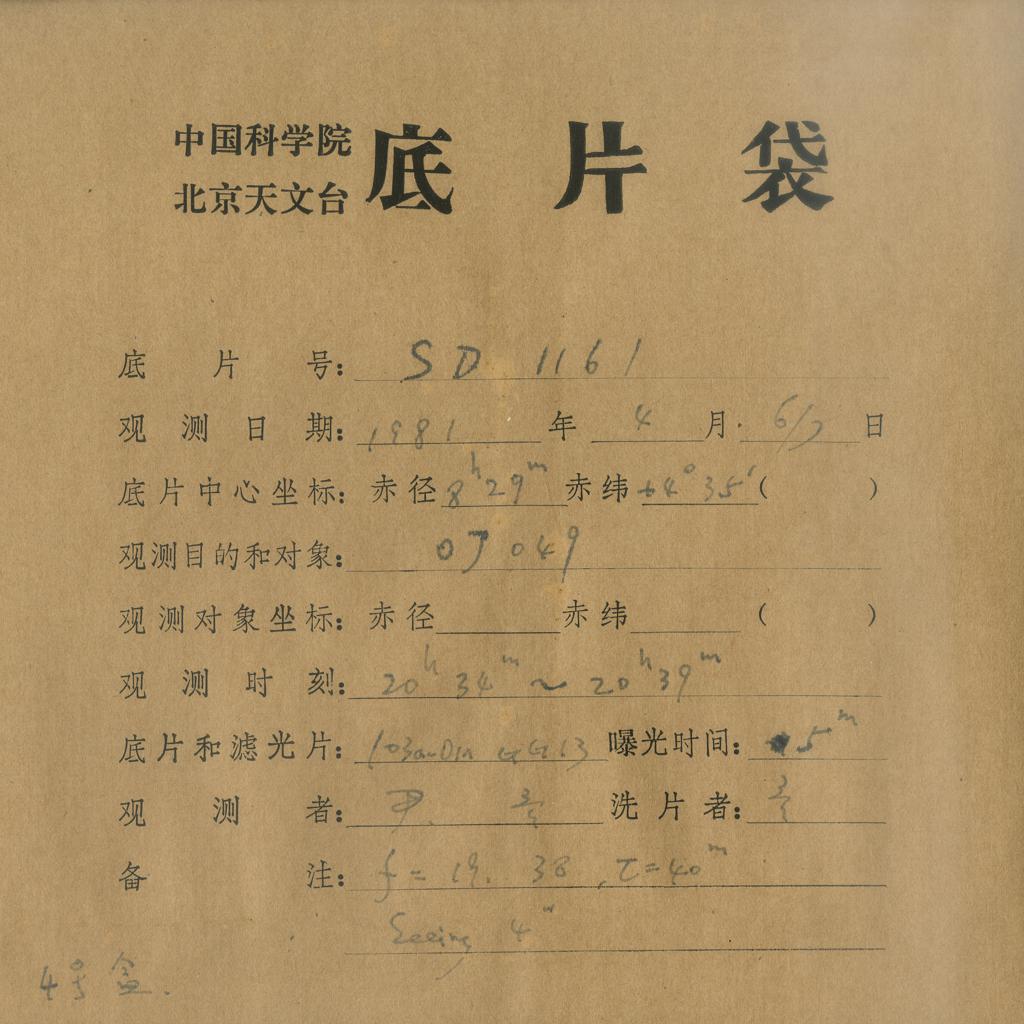 中国科学院
北京天文台
底片袋
底片号: SD 1161
观测日期: 1981年4月6/7日
底片中心坐标: 赤径 8h29m 赤纬 +4°35′ ( )
观测目的和对象: OJ 049
观测对象坐标: 赤径 赤纬 ( )
观测时刻: 20h34m ~ 20h39m
底片和滤光片: GG13 曝光时间: 5m
观测者: 洗片者:
备注: f = 19.38, τ=40m
Seeing 4″
4号盒.